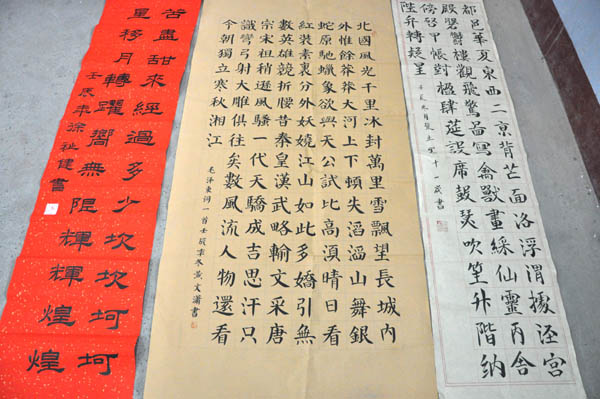 都邑華夏東西二京背芒面洛浮渭據涇宮
殿盤鬱樓觀飛驚圖寫禽獸畫綵仙靈丙舍
傍啓甲帳對楹肆筵設席鼓瑟吹笙升階納
陛弁轉疑星
十一歲書
北國風光千里冰封萬里雪飄望長城內
外惟餘莽莽大河上下頓失滔滔山舞銀
蛇原馳蠟象欲與天公試比高湏晴日看
紅裝素裏分外妖嬈江山如此多嬌引無
數英雄競折腰昔秦皇漢武略輸文采唐
宗宋祖稍遜風騷一代天驕成吉思汗只
識彎弓射大雕俱往矣數風流人物還看
今朝獨立寒秋湘江
毛澤東詞一首壬辰年冬黃文瀟書
苦盡甜來經過多少坎坎坷坷
星移月轉躍嚮無限輝輝煌煌
壬辰年徐祉健書